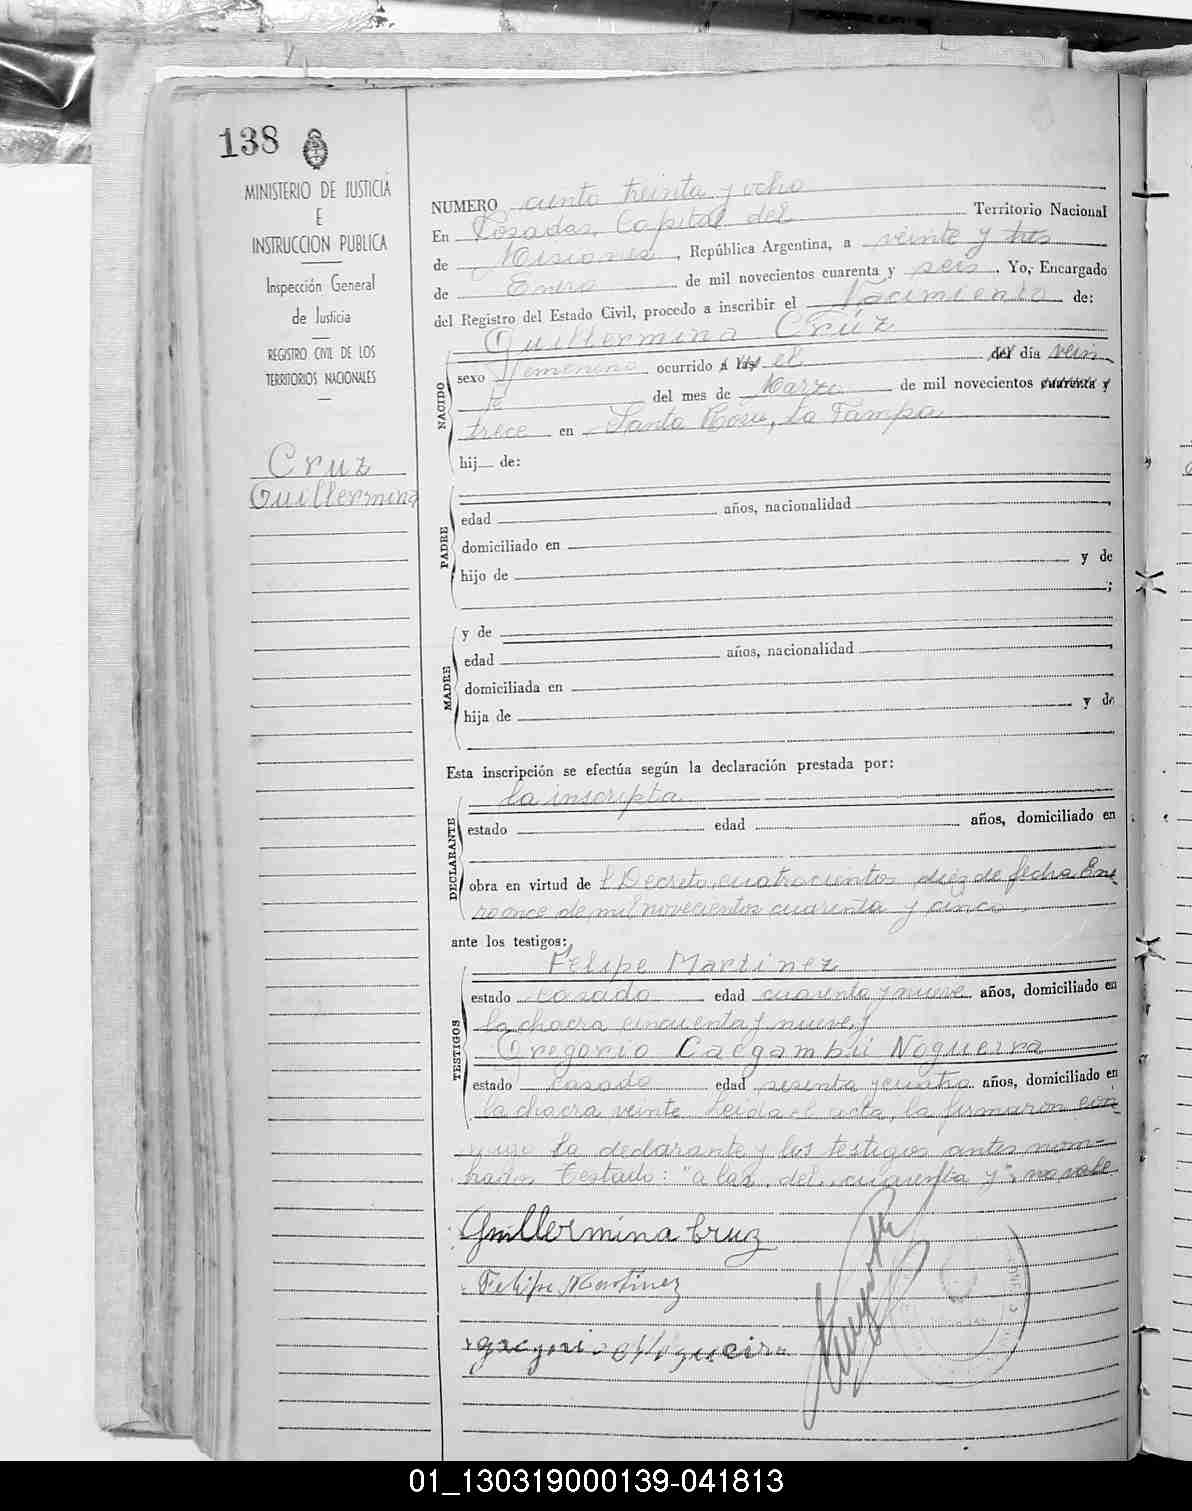 138
MINISTERIO DE JUSTICIA
E
INSTRUCCION PUBLICA
Inspección General
de Justicia
REGISTRO CIVIL DE LOS
TERRITORIOS NACIONALES
Cruz
Guillermina
NUMERO ciento treinta y ocho
En Posadas, Capital del Territorio Nacional
de Misiones, República Argentina, a veinte y tres
de Enero de mil novecientos cuarenta y seis. Yo, Encargado
del Registro del Estado Civil, procedo a inscribir el Nacimiento de:
Guillermina Crúz
NACIDO
sexo femenino ocurrido a las el del día vein
te del mes de Marzo de mil novecientos cuarenta y
trece en Santa Rosa, La Pampa
hij de:
PADRE
edad años, nacionalidad
domiciliado en
hijo de y de
;
MADRE
y de
edad años, nacionalidad
domiciliada en
hija de y de
Esta inscripción se efectúa según la declaración prestada por:
DECLARANTE
la inscripta
estado edad años, domiciliado en
obra en virtud de l Decreto cuatrocientos diez de fecha Ene
ro once de mil novecientos cuarenta y cinco
ante los testigos:
TESTIGOS
Felipe Martinez
estado casado edad cuarenta y nueve años, domiciliado en
la chacra cincuenta y nueve y
Gregorio Noguera
estado casado edad sesenta y cuatro años, domiciliado en
la chacra veinte Leida el acta, la firmaron con
migo la declarante y los testigos antes nom-
brados Testado: "a las, del, cuarenta y" no vale
Guillermina Cruz
Felipe Martinez
01_130319000139-041813